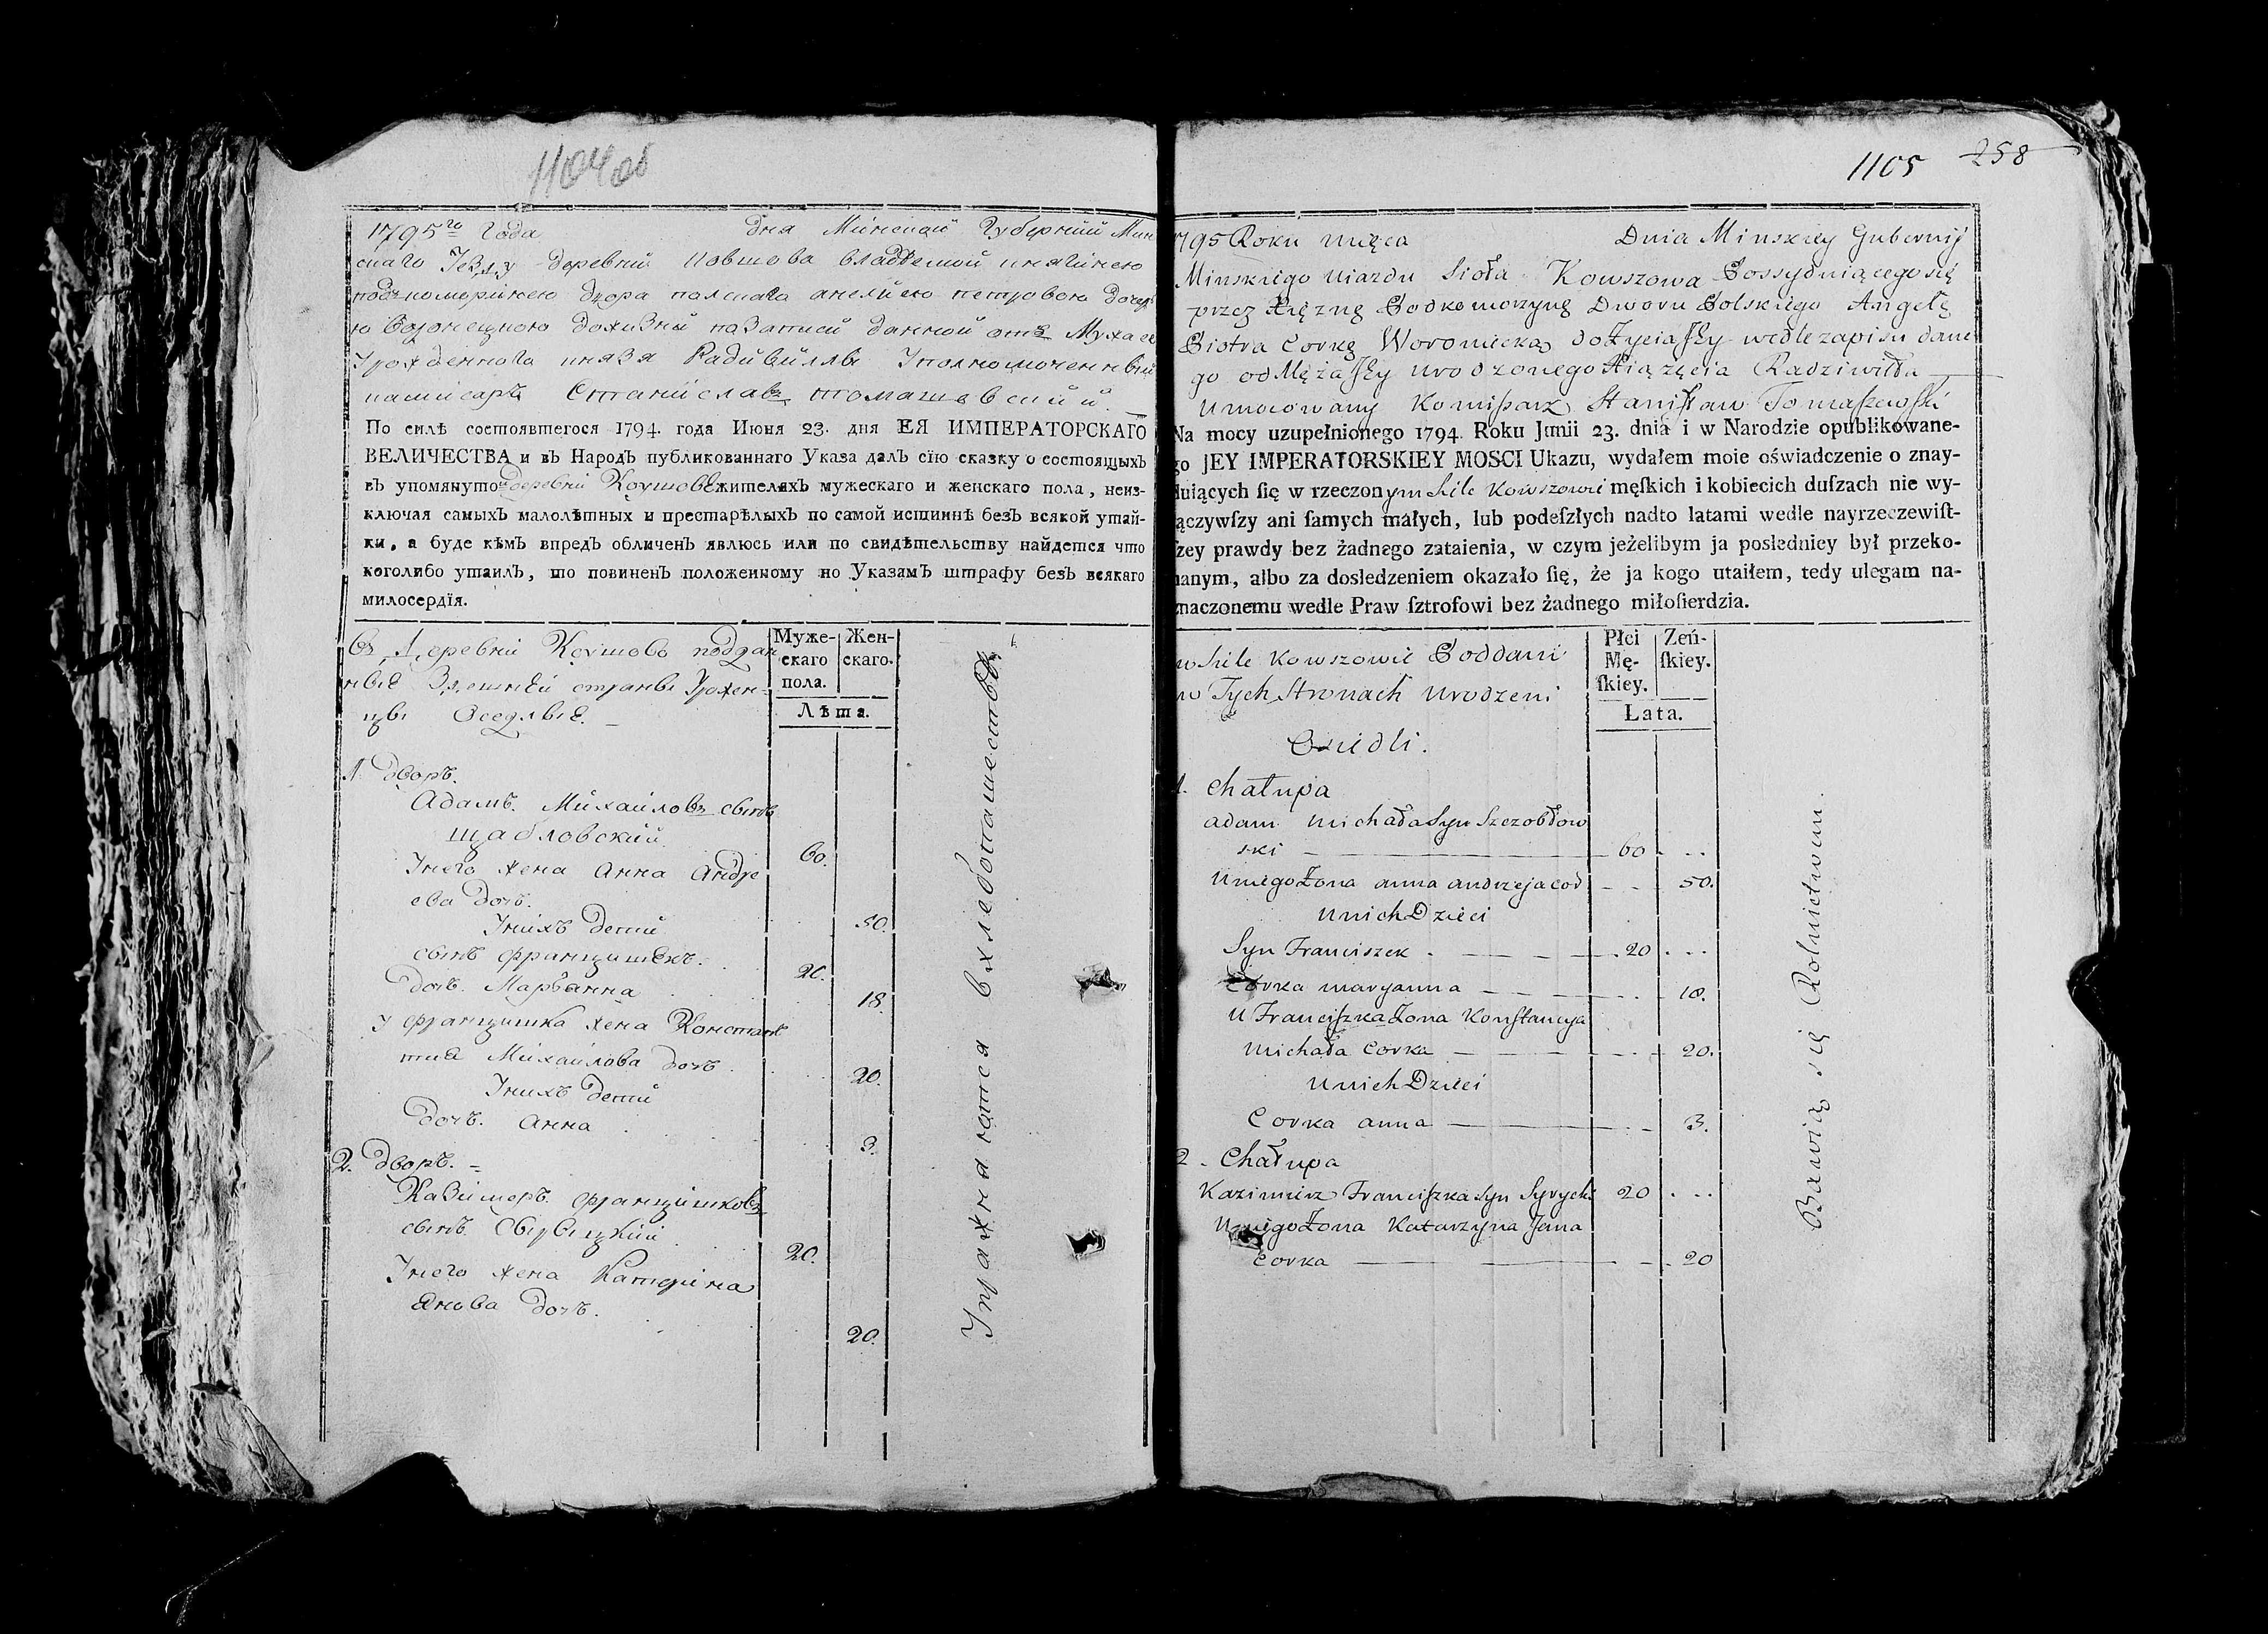 1104 об
1795го Года дня Минской Губернии Мин
скаго Уезду деревни Ковшова владеемой княгинею
подкоморинею двора полскаго анелиею петровою дочер
ю Воронецкою доживни по записи данной отъ Мужа ее
Урожденнога князя Радивиллы Уполномоченный
камисаръ Станиславъ томашевский.
По силѣ состоявшегося 1794. года Июня 23. дня ЕЯ ИМПЕРАТОРСКАГО
ВЕЛИЧЕСТВА и въ Народъ публикованнаго Указа далъ сїю сказку о состоящыхъ
въ упомянутой деревни Коушовѣ жителяхъ мужескаго и женскаго пола, неиз-
ключая самыхъ малолѣтных и престарѣлыхъ по самой истиннѣ безъ всякой утай-
ки, а буде кѣмъ впредъ обличенъ явлюсь или по свидѣтельству найдется что
коголибо утаилъ, то повиненъ положенному по Указамъ штрафу безъ всякаго
милосердїя.
Въ Деревни Коушове поддан
ные Здешней страны Урожен-
цы Оседлые.
Муже-
скаго
пола.
Жен-
скаго.
Лѣта.
1. дворъ.
Адамъ Михайловъ сынъ
щабловский 60.
Унего жена Анна Андре
ева дочь. 50.
Унихъ дети
сынъ францишекъ. 20.
дочь Марьанна 18.
у францишка жена Констанъ
тиа Михайлова дочь. 20.
Унихъ дети
дочь. Анна 3.
2. дворъ.
Казимеръ францишковъ
сынъ Сырыцкий 20.
Унего жена Катерина
Янова дочь. 20.
Упражняются в хлебопашествѣ.
1105 258
1795 Roku Mięca Dnia Minskiey Gubernij
Minskiego Uiazdu Sioła Kowszowa Possydniącego się
przez Xiężnę Podkomorzynę Dworu Polskiego Angelę
Piotra Corkę Woroniecką dożyciaſzy wedle zapisu dane
go od Mężaſzy urodzonego Xiążęcia Radziwiłła
Umocowany Komiſsarz Staniſław Tomaſzewſki
Na mocy uzupełnionego 1794. Roku Junii 23. dnia i w Narodzie opublikowane-
go JEY IMPERATORSKIEY MOSCI Ukazu, wydałem moie oświadczenie o znay-
duiących ſię w rzeczonym Siele Kowszowie męſkich i kobiecich duſzach nie wy-
łączywſzy ani ſamych małych, lub podeſzłych nadto latami wedle nayrzeczewiſt-
szey prawdy bez żadnego zataienia, w czym jeżelibym ja poslednicy był przeko-
nanym, albo za dosledzeniem okazało ſię, że ja kogo utaiłem, tedy ulegam na-
znaczonemu wedle Praw ſztrofowi bez żadnego miłoſierdzia.
w Siele Kowszowie Poddani
w Tych Stronach urodzeni
Osiedli.
Płci
Mę-
ſkiey.
Zeń-
ſkiey.
Lata.
1. Chałupa
adam Michała Syn Szczobłow
ski 60
U niego Zona anna andrzeja cod 50.
U nich Dzieci
Syn Franciszek 20
Corka maryanna 18.
U Franciſzka Zona Konſtancya
Michała Corka 20.
U nich Dzieci
Corka anna 3.
2. Chałupa
Kazimierz Franciſzka Syn Syrycki 20
U niego Zona Katarzyna Jana
Corka 20
Bawią się Rolnictwem.